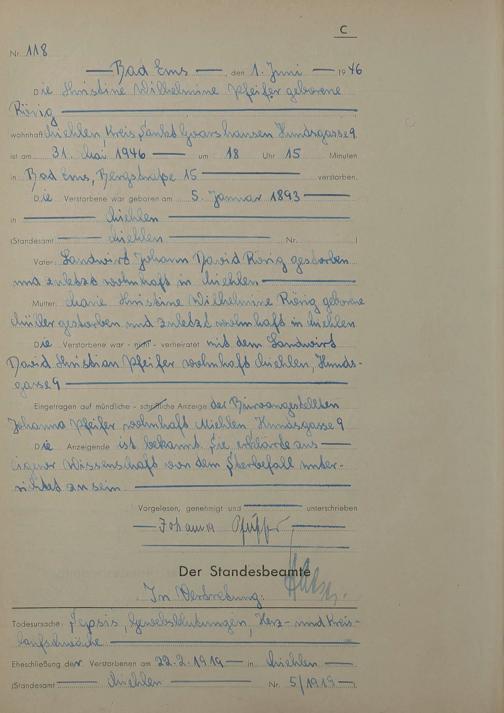 C
Nr. 118
Bad Ems, den 1. Juni 1946
Die Christine Wilhelmine Pfeifer geborene
Rörig
wohnhaft Miehlen, Kreis Sankt Goarshausen Hundsgasse 9
ist am 31. Mai 1946 um 18 Uhr 15 Minuten
in Bad Ems, Bergstraße 15 verstorben.
Die Verstorbene war geboren am 5. Januar 1893
in Miehlen
(Standesamt Miehlen Nr. )
Vater: Landwirt Johann David Rörig gestorben
und zuletzt wohnhaft in Miehlen
Mutter: Marie Christine Wilhelmine Rörig geborene
Müller gestorben und zuletzt wohnhaft in Miehlen
Die Verstorbene war - nicht - verheiratet mit dem Landwirt
David Christian Pfeifer wohnhaft Miehlen, Hunds-
gasse 9
Eingetragen auf mündliche - schriftliche Anzeige der Büroangestellten
Johanna Pfeifer wohnhaft Miehlen Hundsgasse 9
Die Anzeigende ist bekannt. Sie erklärte aus
eigener Wissenschaft von dem Sterbefall unter-
richtet zu sein
Vorgelesen, genehmigt und unterschrieben
Johanna Pfeiffer
Der Standesbeamte
In Vertretung:
Todesursache: Sepsis, Gewebsblutungen, Herz- und Kreis-
laufschwäche
Eheschließung der Verstorbenen am 22.2.1919 in Miehlen
(Standesamt Miehlen Nr. 5/1919)